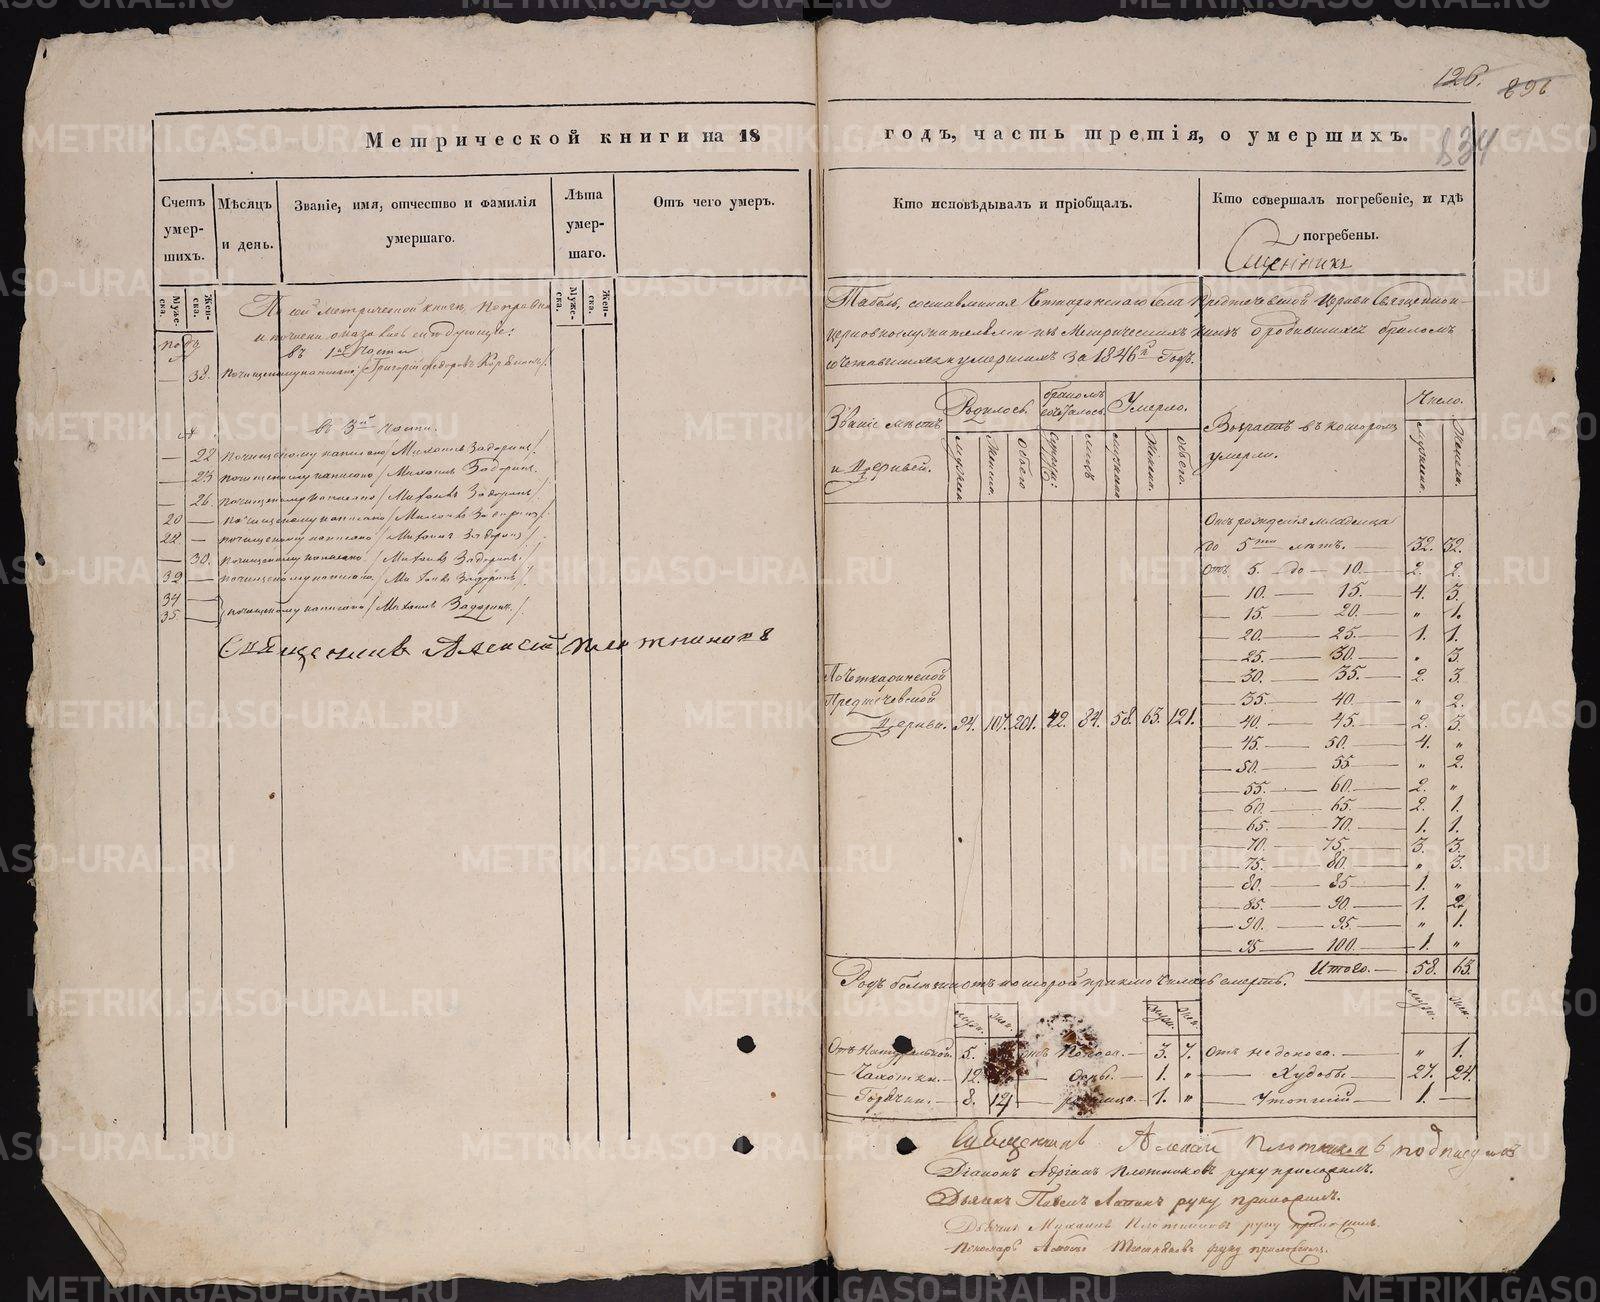 126.
896
834
Метрической книги на 18
годъ, часть третія, о умершихъ.
Счетъ умер-шихъ.
Мѣсяцъ и день.
Званіе, имя, отчество и фамилія умершаго.
Лѣта умер-шаго.
Отъ чего умеръ.
Кто исповѣдывалъ и пріобщалъ.
Кто совершалъ погребеніе, и гдѣ погребены.
Муже-ска.
Жен-ска.
Муже-ска.
Жен-ска.
По сей метрической книгѣ поправки
и почистки оказались слѣдующіе:
въ 1й части
подъ
— 38. почищеному написано /Григорій Федоровъ
въ 3й части.
— 22 почищеному написано /Михаилъ Задоринъ/.
— 23 почищеному написано /Михаилъ Задоринъ.
— 26. почищеному написано /Михаилъ Задоринъ/.
20 — почищеному написано /Михаилъ Задоринъ/.
22 — почищеному написано /Михаилъ Задоринъ/
— 30. почищеному написано /Михаилъ Задоринъ/.
32 — почищеному написано /Михаилъ Задоринъ/.
34
35 почищеному написано /Михаилъ Задоринъ/.
Священникъ Алексей Плотников
Табель, составленная Четкаринскаго села Предтечевской Церкви Священно-
церковнослужителями изъ Метрическихъ книгъ о родившихся бракомъ
сочетавшихся и умершихъ за 1846й Годъ.
Званіе мѣстъ и Церквей.
Родилось.
бракомъ сочеталось
Умерло.
Возрастъ въ которомъ умерли.
Число.
Мужска
Женска.
Обоего
Супруж:
лицъ
мужска
Женска.
Обоего.
мужска.
Женска.
Отъ рожденія младенца
до 5ти лѣтъ. — 32. 32.
Отъ 5. — до — 10. — 2. 2.
— 10. — 15. — 4. 3.
— 15. — 20. — „ 1.
— 20. — 25. — 1. 1.
— 25. — 30. — „ 3.
— 30. — 35. — 2. 3.
— 35. — 40. — „ 2.
— 40. — 45. — 2. 3.
— 45. — 50. — 4. „
— 50. — 55 — „ 2.
— 55. — 60. — 2. „
— 60. — 65. — 2. 1.
— 65. — 70. — 1. 1.
— 70. — 75. — 3. 3.
— 75. — 80. — „ 3.
— 80. — 85 — 1. „
— 85. — 90. — 1. 2.
— 90. — 95. — „ 1.
— 95 — 100. — 1. „
Итого. — 58. 63.
По Четкаринской
Предтечевской
Церкви. 94. 107. 201. 42. 84. 58. 63. 121.
Родъ болѣзни отъ которой приключилась смерть.
муж. жен.
муж. жен.
муж. жен.
Отъ Натуральной. 5.
отъ Поноса. — 3. 7.
отъ недокога. — „ 1.
— Чахотки. — 12.
— Оспы. — 1. „
— Худобы — 27. 24.
— Горячки. — 8. 14
1. „
— Утопшій — 1. —
Священникъ Алексей Плотников подписуюсь
Діаконъ Адріанъ Плотниковъ руку приложилъ.
Дьячекъ Павелъ Лапинъ руку приложилъ.
Дьячекъ Михаилъ Плотниковъ руку приложилъ.
Пономарь руку приложилъ.
METRIKI.GASO-URAL.RU